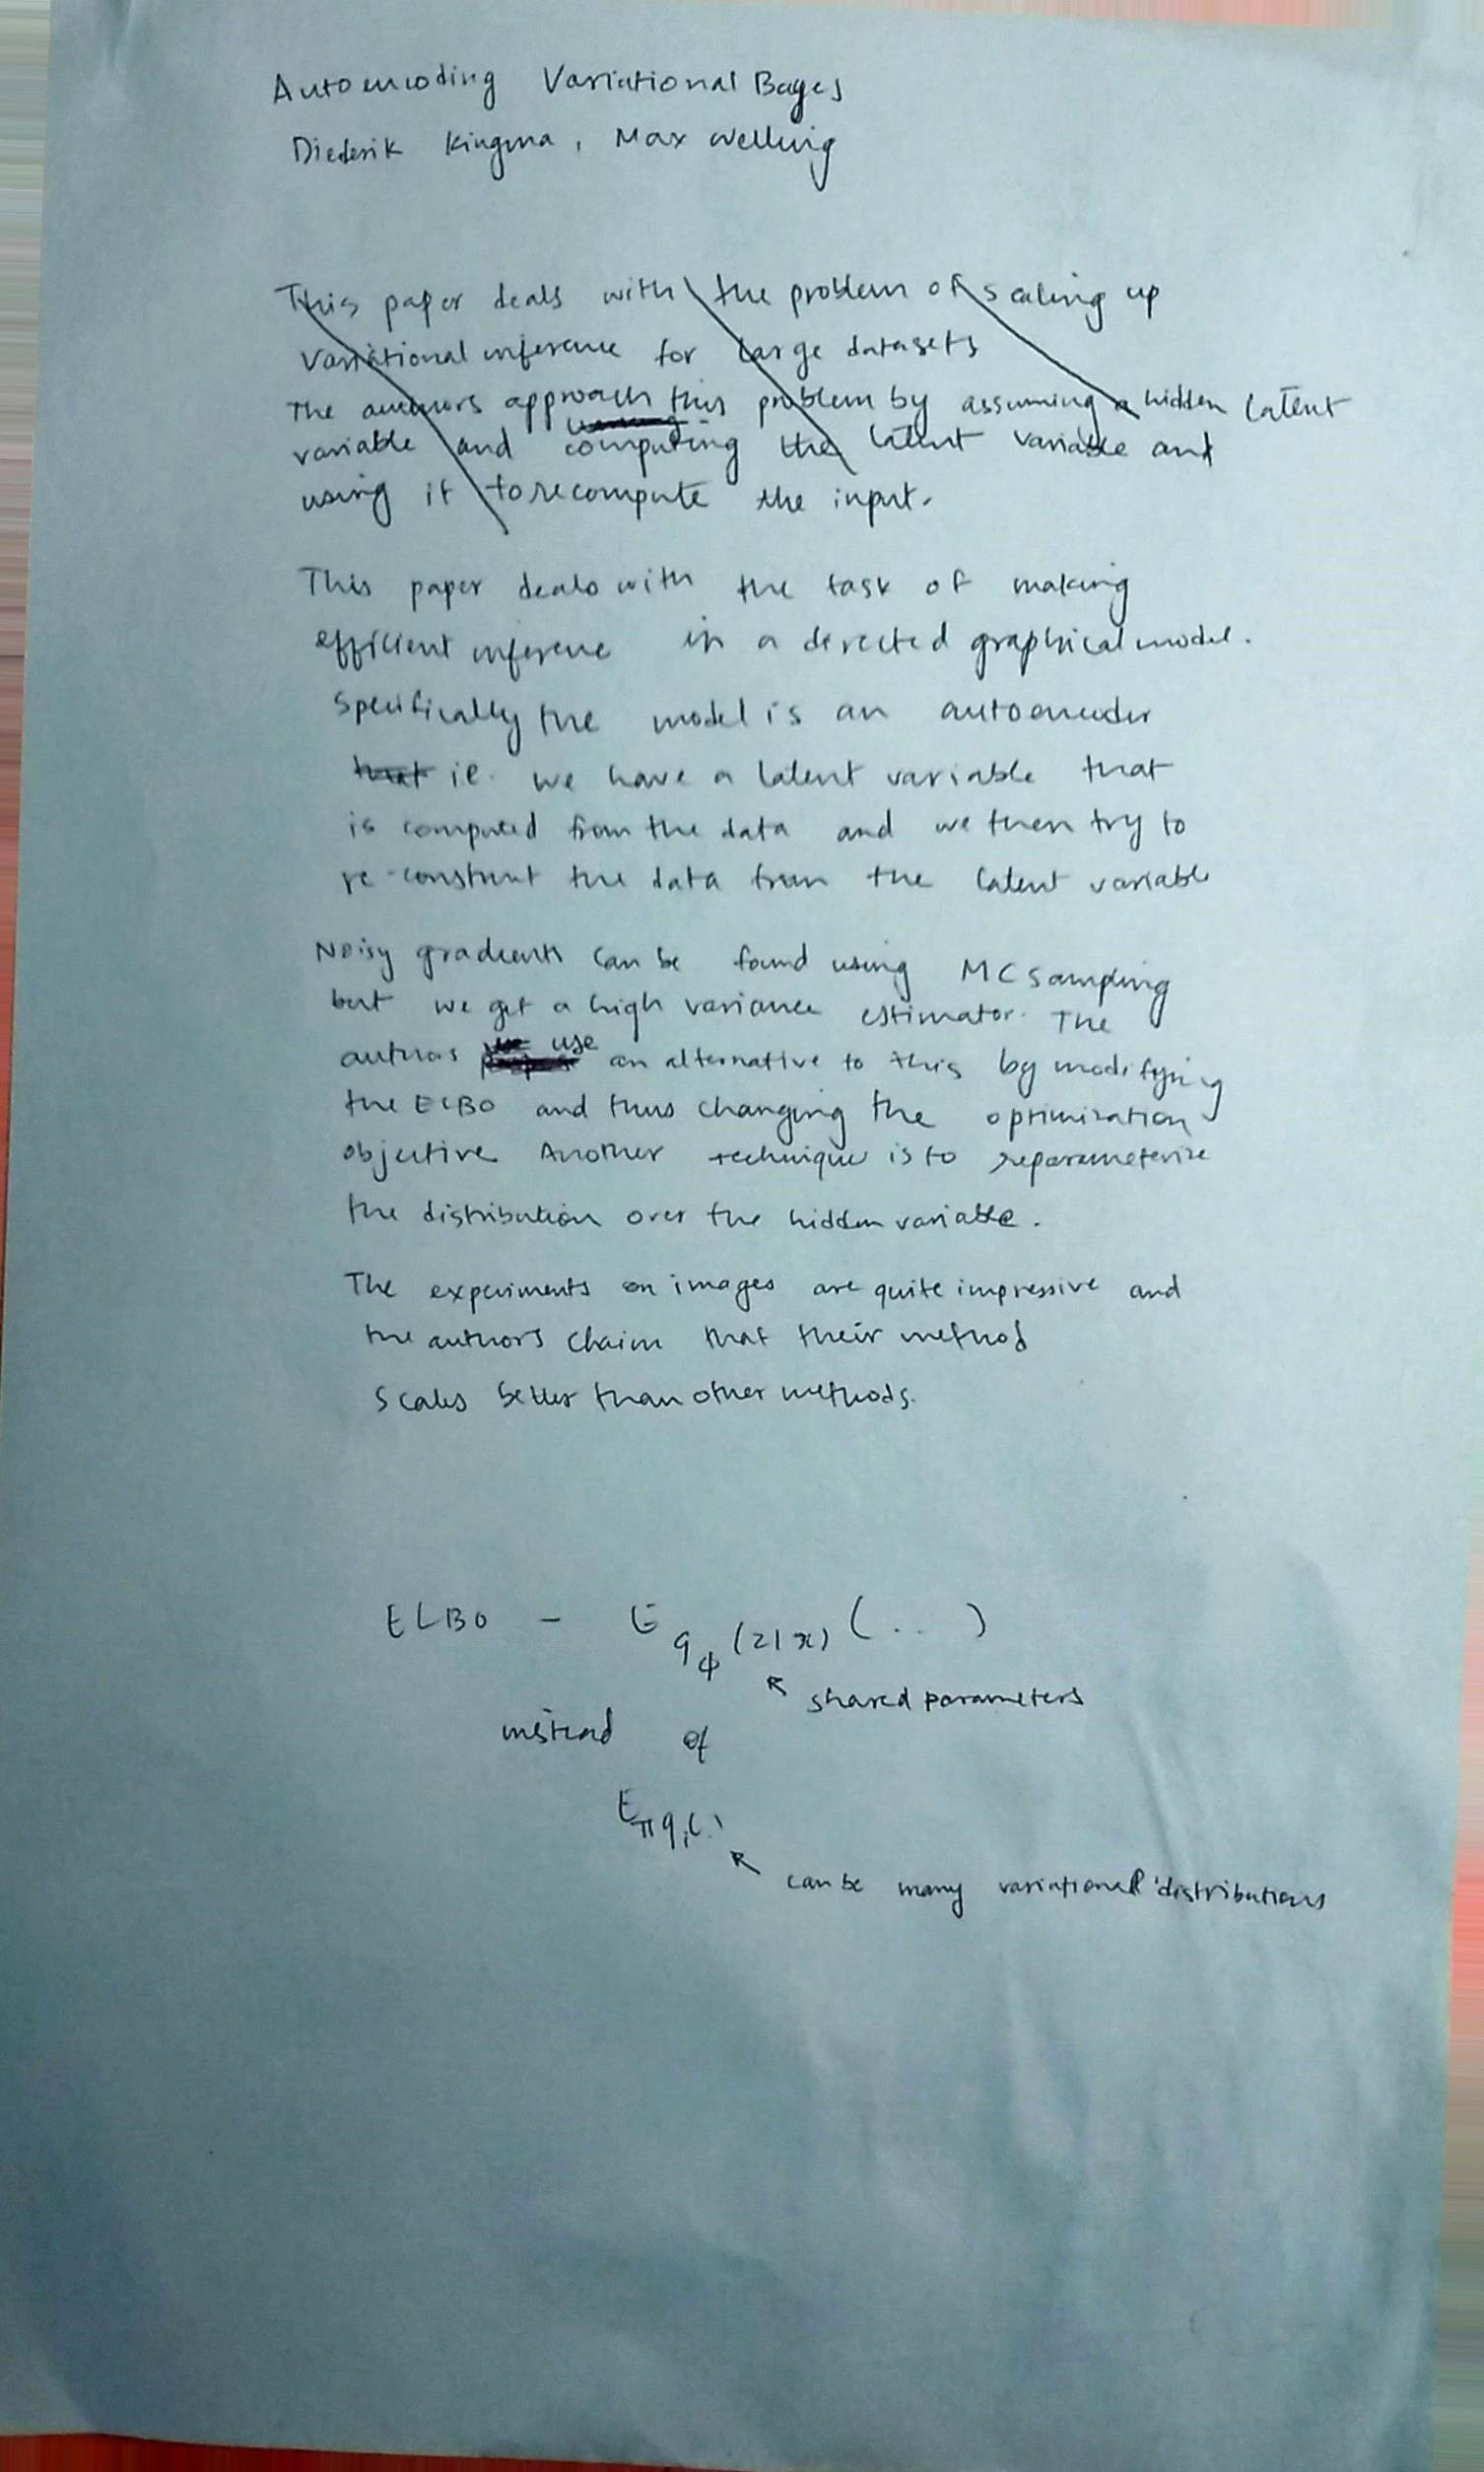 Autoencoding Variational Bayes
Diederik Kingma, Max Welling
This paper deals with the problem of scaling up
Variational inference for large datasets
The authors approach this problem by assuming a hidden latent
variable and computing the latent variable and
using it to recompute the input.
This paper deals with the task of making
efficient inference in a directed graphical model.
Specifically the model is an autoencoder
that ie. we have a latent variable that
is computed from the data and we then try to
re-construct the data from the latent variable
Noisy gradients can be found using MC sampling
but we get a high variance estimator. The
authors use an alternative to this by modifying
the ELBO and thus changing the optimization
objective Another technique is to reparameterize
the distribution over the hidden variable.
The experiments on images are quite impressive and
the authors claim that their method
scales better than other methods.
ELBO - E q ϕ (z|x) (...)
shared parameters
instead of
E π q i (.)
can be many variational distributions